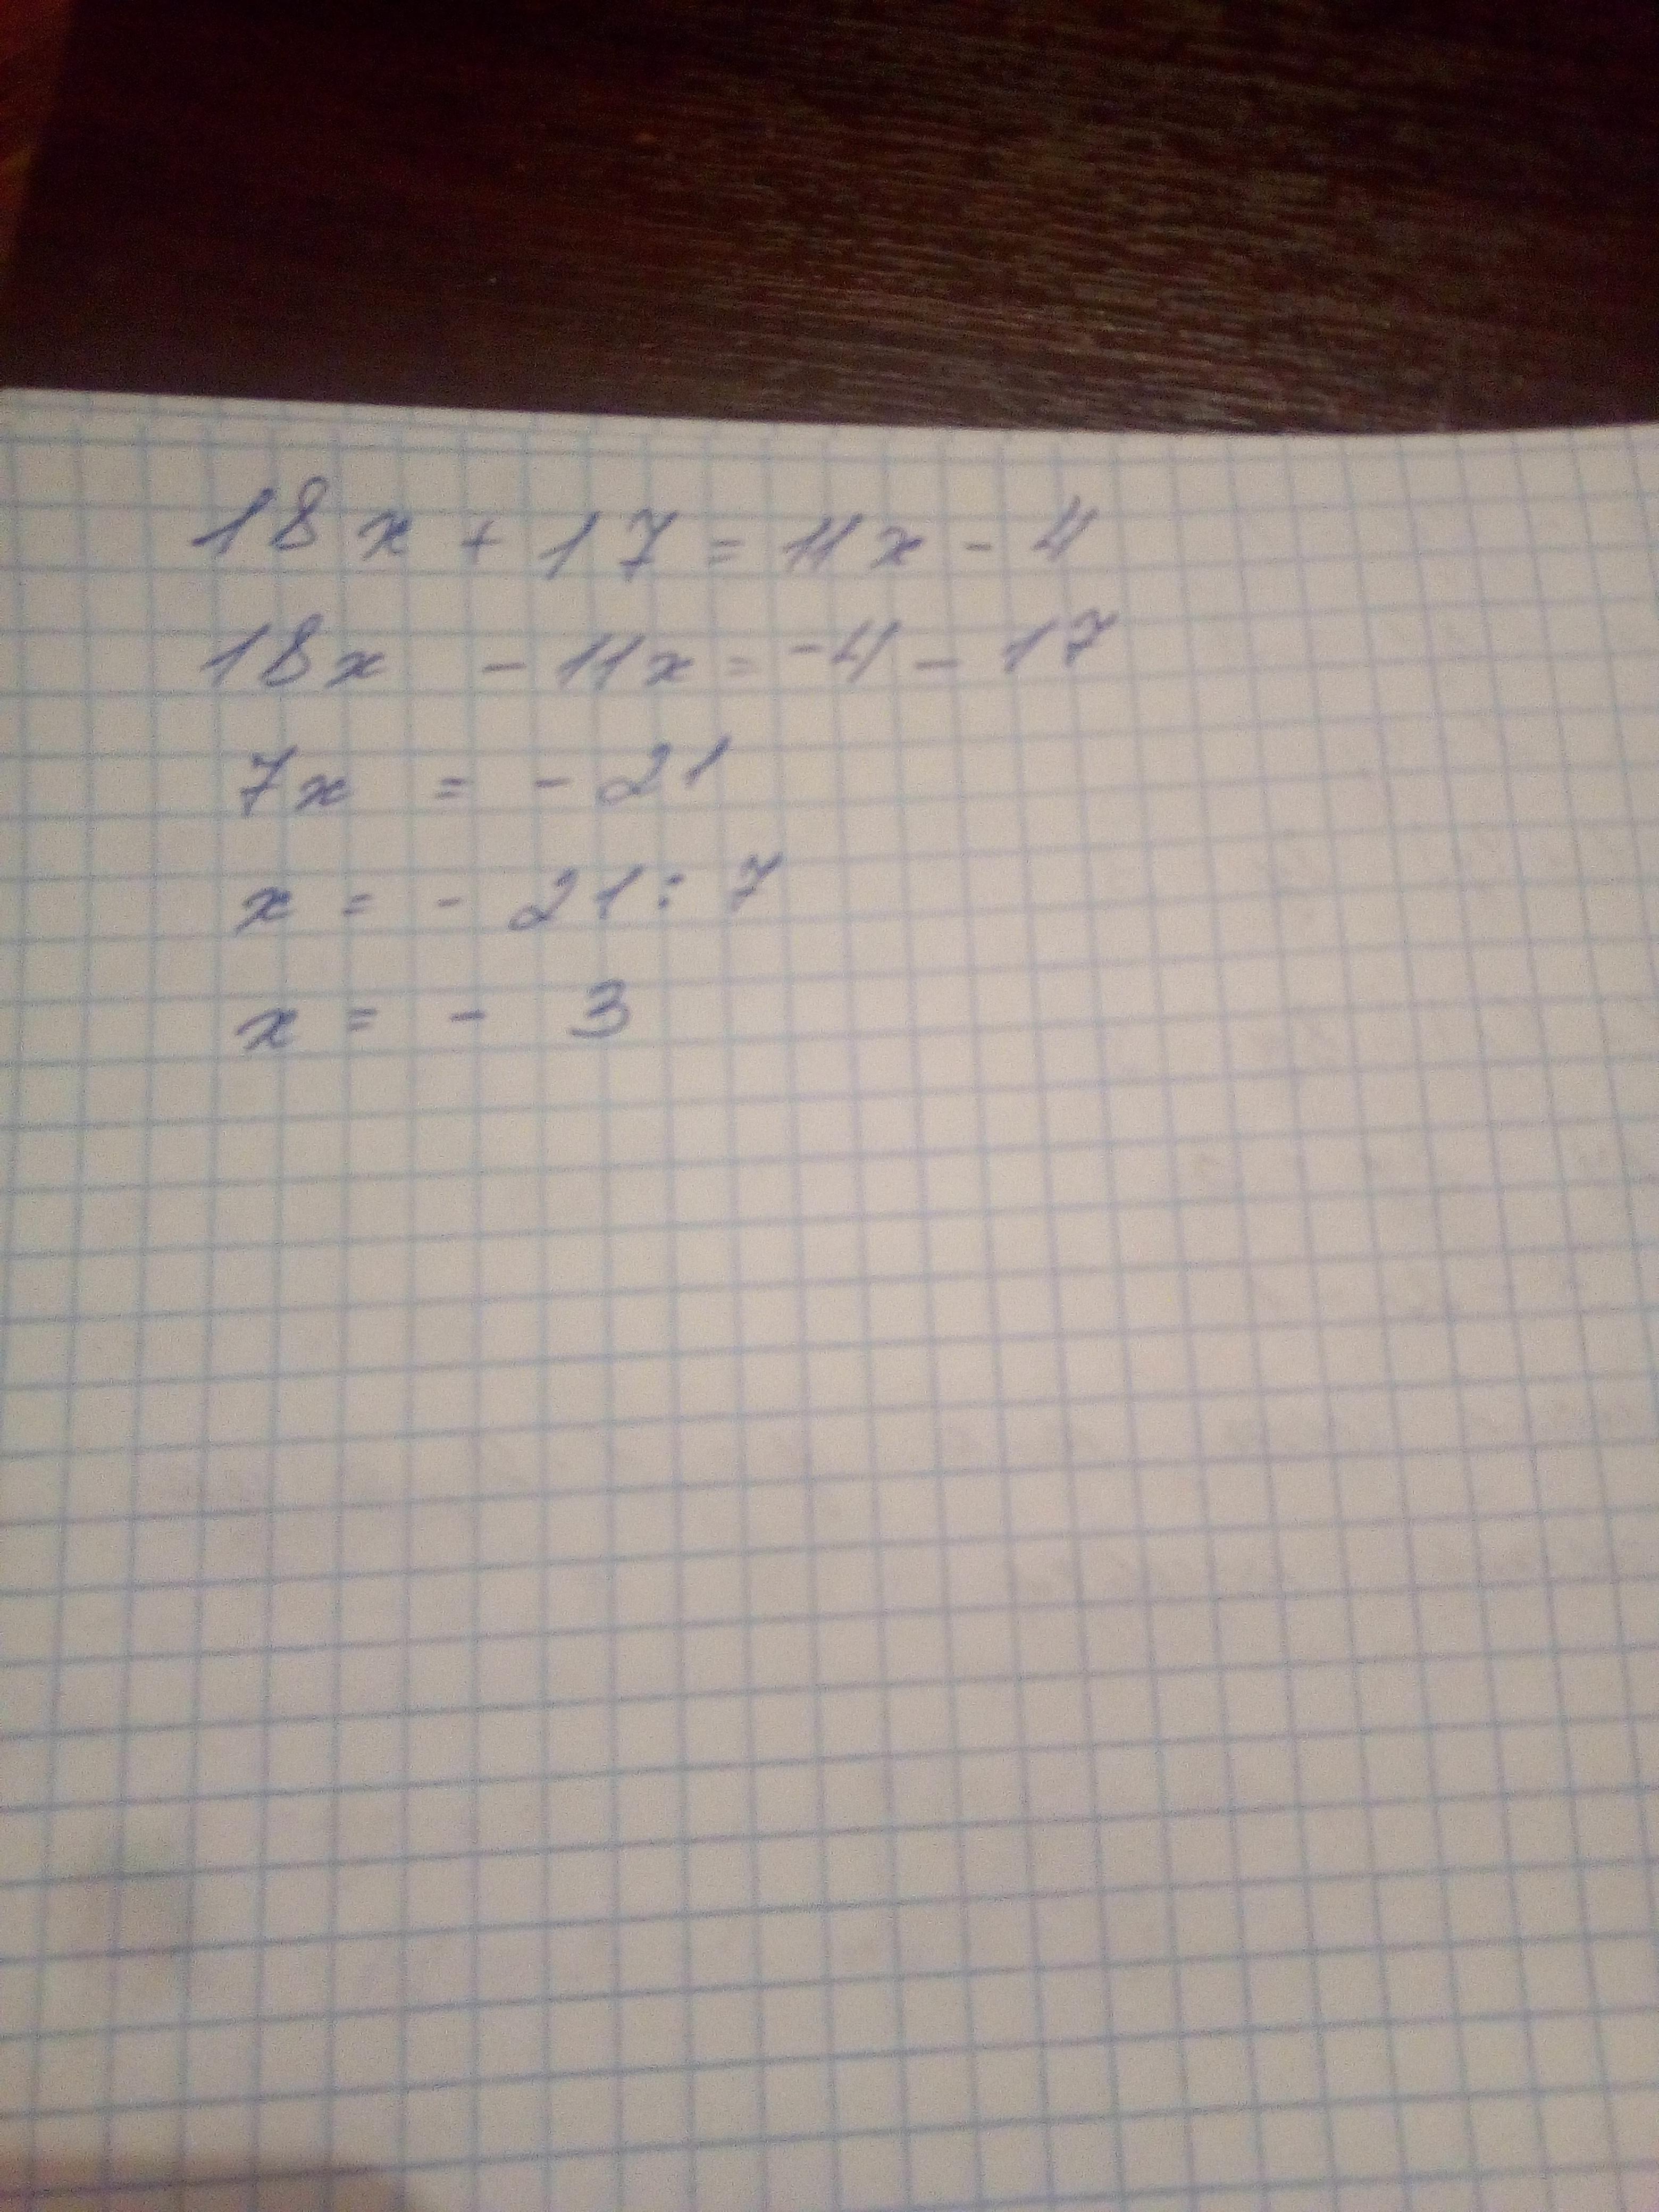 18x + 17 = 11x - 4
18x - 11x = -4 - 17
7x = - 21
x = - 21 : 7
x = - 3